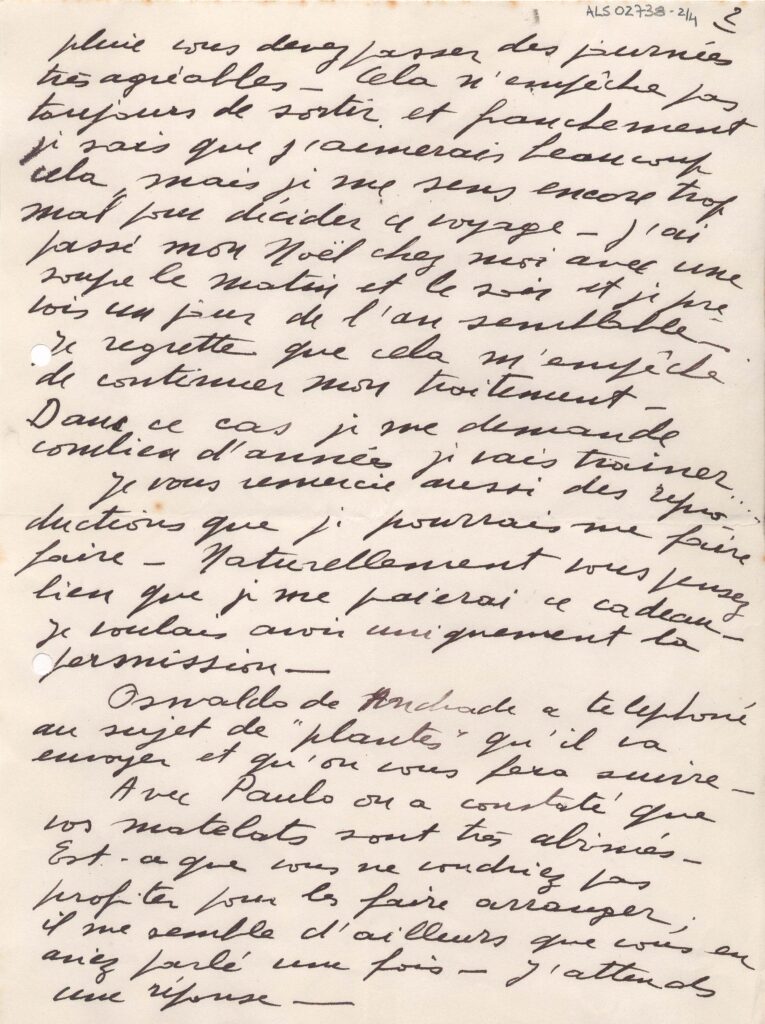 ALS 02738-2/4
2
pluie vous devez passer des journées
très agréables — Cela n'empêche pas
toujours de sortir et franchement
je sais que j'aimerais beaucoup
cela, mais je me sens encore trop
mal pour décider ce voyage — J'ai
passé mon Noël chez moi avec une
soupe le matin et le soir et je pré-
vois un jour de l'an semblable —
Je regrette que cela m'empêche
de continuer mon traitement —
Dans ce cas je me demande
combien d'années je vais trainer.....
Je vous remercie aussi des repro-
ductions que je pourrais me faire
faire — Naturellement vous pensez
bien que je me paierai ce cadeau —
Je voulais avoir uniquement la
permission —
Oswaldo de Andrade a telephoné
au sujet de "plantes" qu'il va
envoyer et qu'on vous fera suivre —
Avec Paulo on a constaté que
vos matelats sont très abimés —
Est-ce que vous ne voudriez pas
profiter pour les faire arranger,
il me semble d'ailleurs que vous en
aviez parlé une fois — J'attends
une réponse —